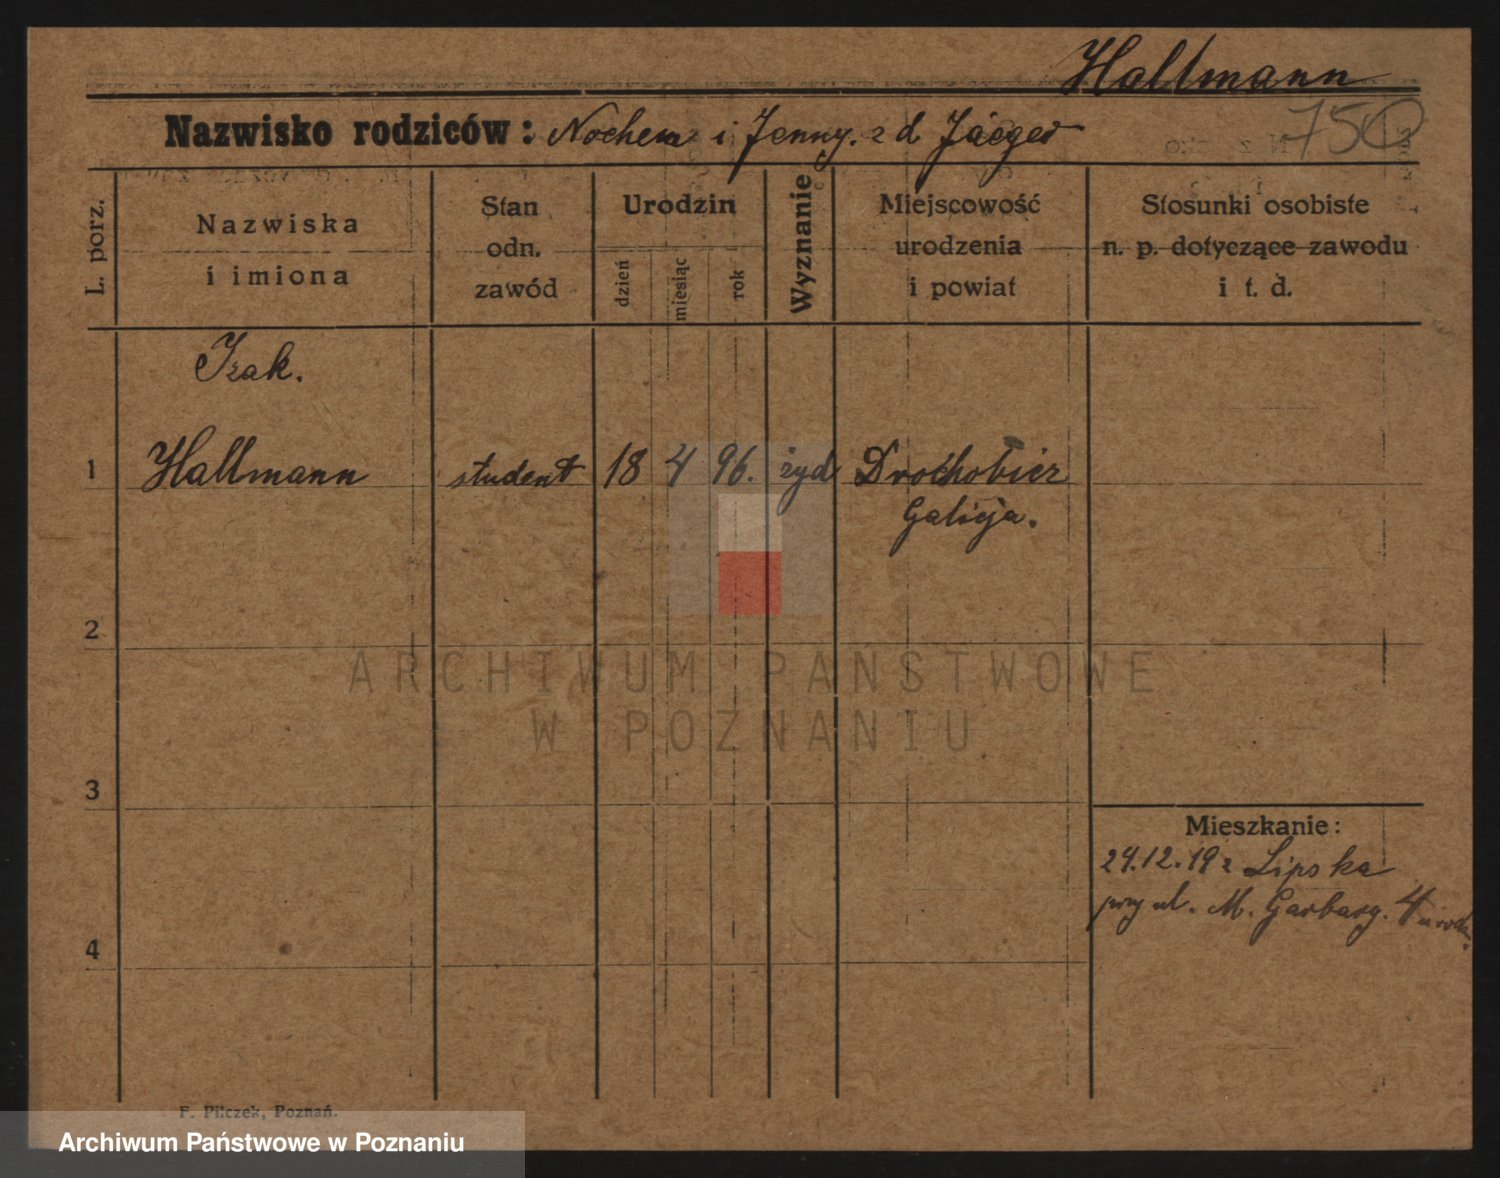 Haltmann
750
Nazwisko rodziców: Nochem i Jenny. z d Jäeger
L. porz.
Nazwiska
i imiona
Stan
odn.
zawód
Urodzin
dzień
miesiąc
rok
Wyznanie
Miejscowość
urodzenia
i powiat
Stosunki osobiste
n. p. dotyczące zawodu
i t. d.
Izak.
1 Haltmann student 18 4 96. żyd Drochobicz
Galicja.
2
3
4
Mieszkanie:
24.12.19 z Lipska
przy ul. M. Garbary. 4
F. Pilczek, Poznań.
ARCHIWUM PAŃSTWOWE
W POZNANIU
Archiwum Państwowe w Poznaniu